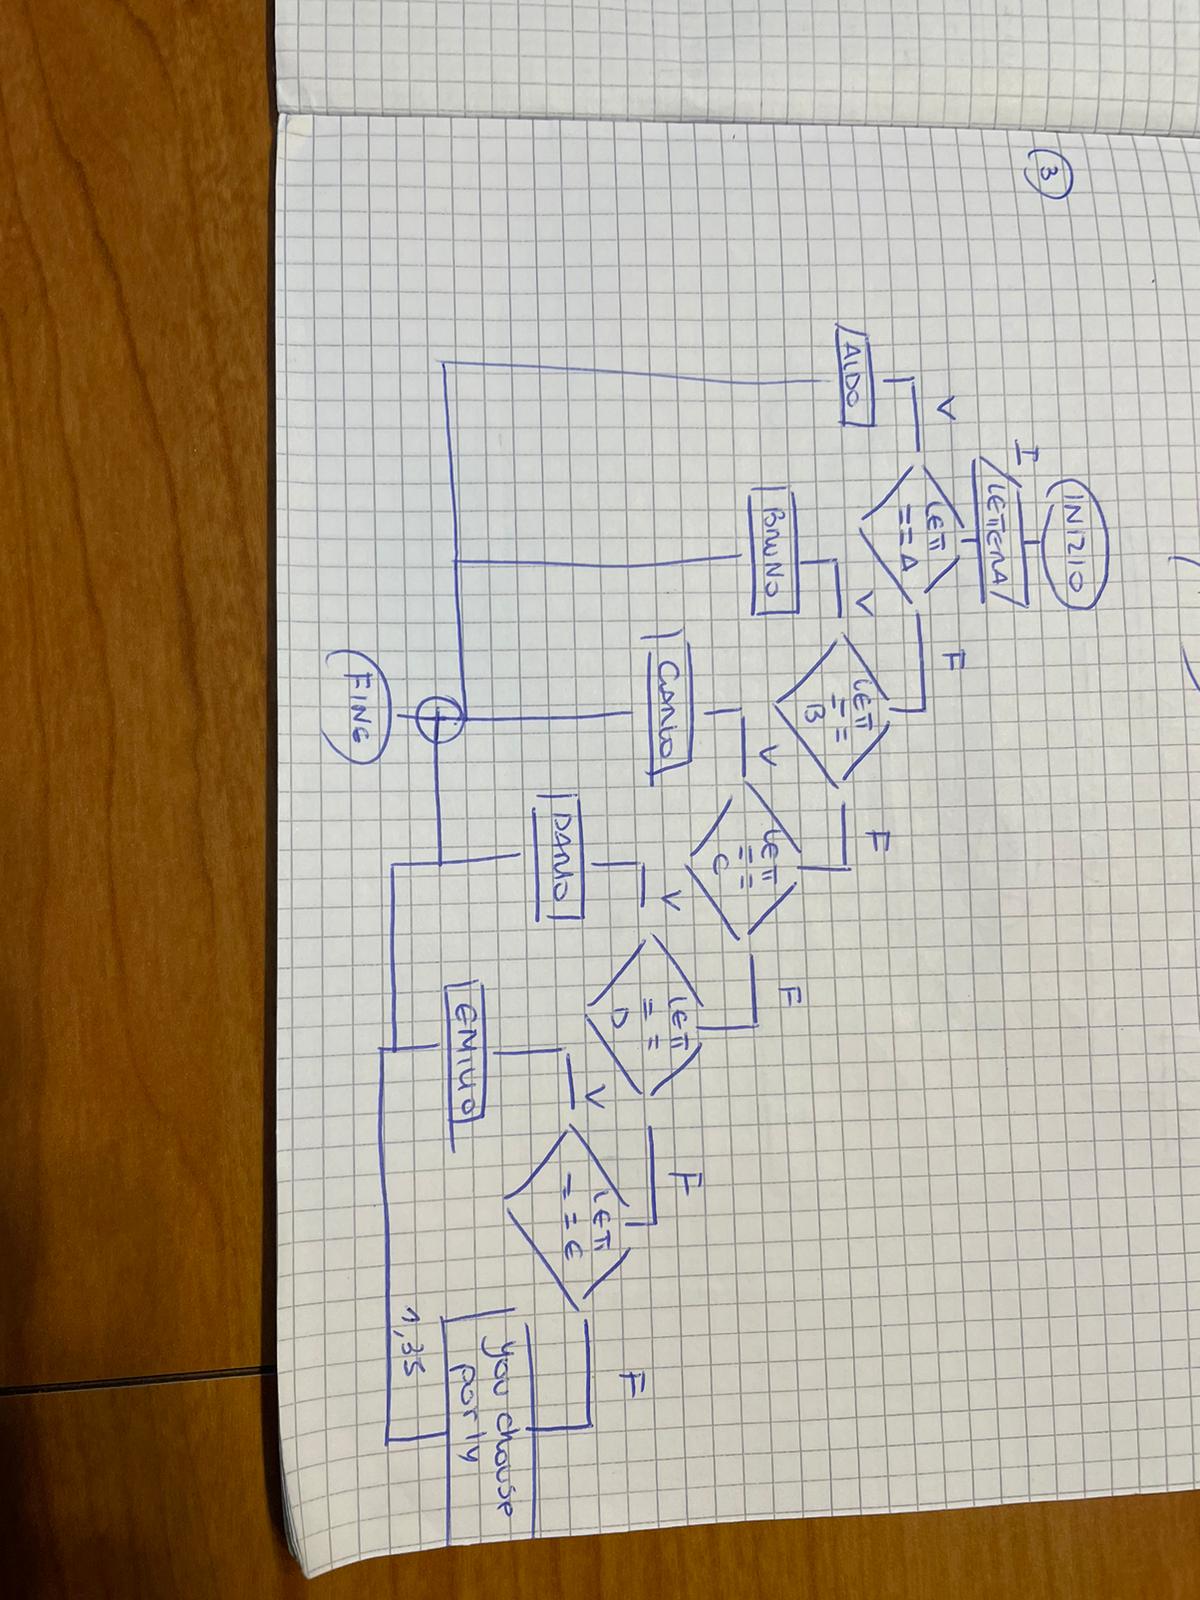 3
INIZIO
I
LETTERA
LETT
== A
V
F
ALDO
LETT
==
B
V
F
BRUNO
LETT
==
C
V
F
CARLO
LETT
==
D
V
F
DARIO
LETT
== E
V
F
EMILIO
you chouse
porly
1,35
FINE